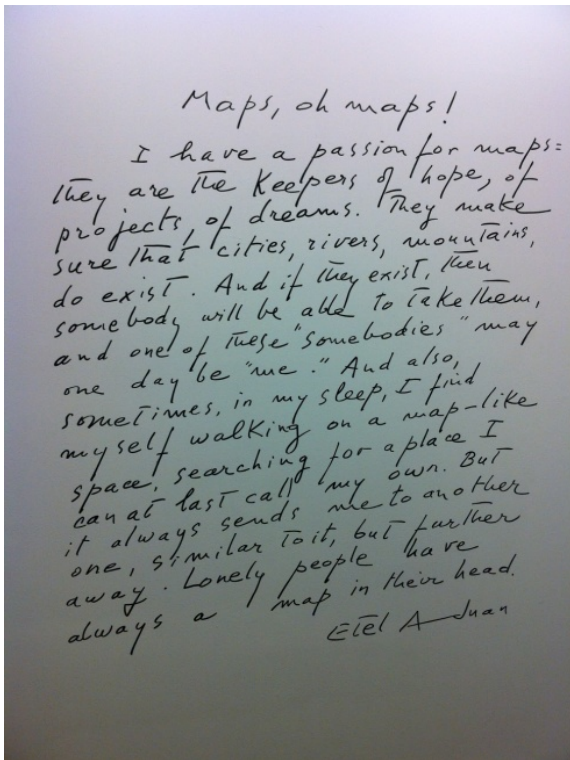 Maps, oh maps!
I have a passion for maps:
They are the Keepers of hope, of
projects, of dreams. They make
sure that cities, rivers, mountains,
do exist. And if they exist, then
somebody will be able to take them,
and one of these "somebodies" may
one day be "me." And also,
sometimes, in my sleep, I find
myself walking on a map-like
space, searching for a place I
can at last call my own. But
it always sends me to another
one, similar to it, but further
away. Lonely people have
always a map in their head.
Etel Adnan